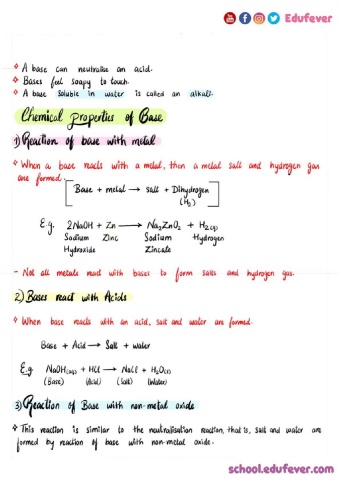 Edufever
❖ A base can neutralise an acid.
❖ Bases feel soapy to touch.
❖ A base soluble in water is called an alkali.
Chemical properties of Base
1) Reaction of base with metal
❖ When a base reacts with a metal, then a metal salt and hydrogen gas
are formed.
[Base + metal → salt + Dihydrogen
(H₂)]
E.g. 2NaOH + Zn → Na₂ZnO₂ + H₂(g)
Sodium Zinc Sodium Hydrogen
Hydroxide Zincate
- Not all metals react with bases to form salts and hydrogen gas.
2) Bases react with Acids
❖ When base reacts with an acid, salt and water are formed.
Base + Acid → Salt + Water
E.g NaOH(aq) + HCl → NaCl + H₂O(l)
(Base) (Acid) (Salt) (Water)
3) Reaction of Base with non-metal oxide
❖ This reaction is similar to the neutralisation reaction, that is, salt and water are
formed by reaction of base with non-metal oxide.
school.edufever.com